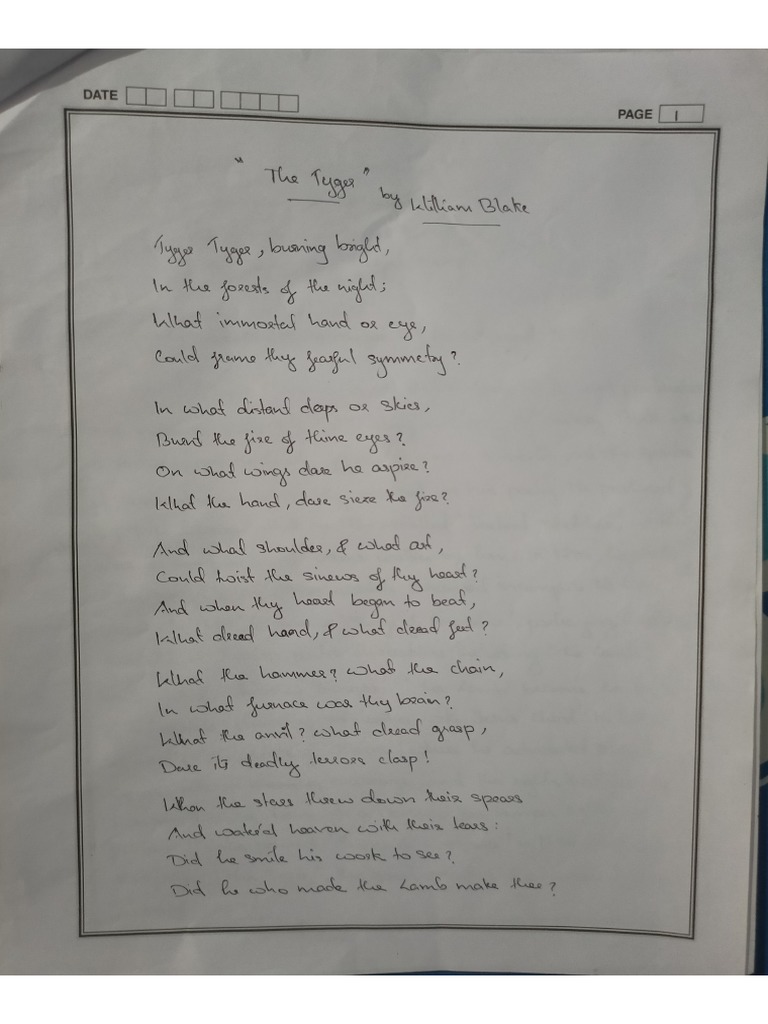 DATE
PAGE 1
"The Tyger"
by William Blake
Tyger Tyger, burning bright,
In the forests of the night;
What immortal hand or eye,
Could frame thy fearful symmetry?
In what distant deeps or skies,
Burnt the fire of thine eyes?
On what wings dare he aspire?
What the hand, dare sieze the fire?
And what shoulder, & what art,
Could twist the sinews of thy heart?
And when thy heart began to beat,
What dread hand, & what dread feet?
What the hammer? what the chain,
In what furnace was thy brain?
What the anvil? what dread grasp,
Dare its deadly terrors clasp!
When the stars threw down their spears
And water'd heaven with their tears:
Did he smile his work to see?
Did he who made the Lamb make thee?